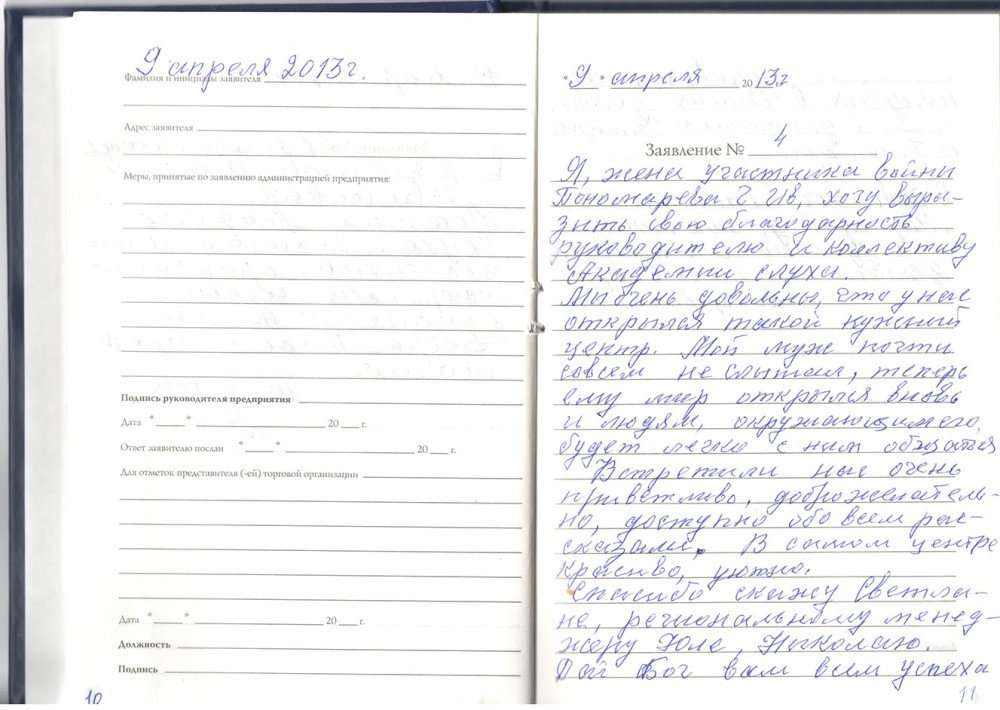 9 апреля 2013г.
Фамилия и инициалы заявителя
Адрес заявителя
Меры, принятые по заявлению администрацией предприятия:
Подпись руководителя предприятия
Дата " " 20 г.
Ответ заявителю послан " " 20 г.
Для отметок представителя (-ей) торговой организации
Дата " " 20 г.
Должность
Подпись
10
"9" апреля 2013г
Заявление № 4
Я, жена участника войны
Пономарева Г. Ив, хочу выра-
зить свою благодарность
руководителю и коллективу
Академии слуха.
Мы очень довольны, что у нас
открылся такой нужный
центр. Мой муж почти
совсем не слышал, теперь
ему мир открылся вновь
и людям, окружающим его,
будет легко с ним общаться
Встретили нас очень
приветливо, доброжелатель-
но, доступно обо всем рас-
сказали. В самом центре
красиво, уютно.
Спасибо скажу Светла-
не, региональному менед-
жеру Юле, Николаю.
Дай Бог вам всем успеха
11